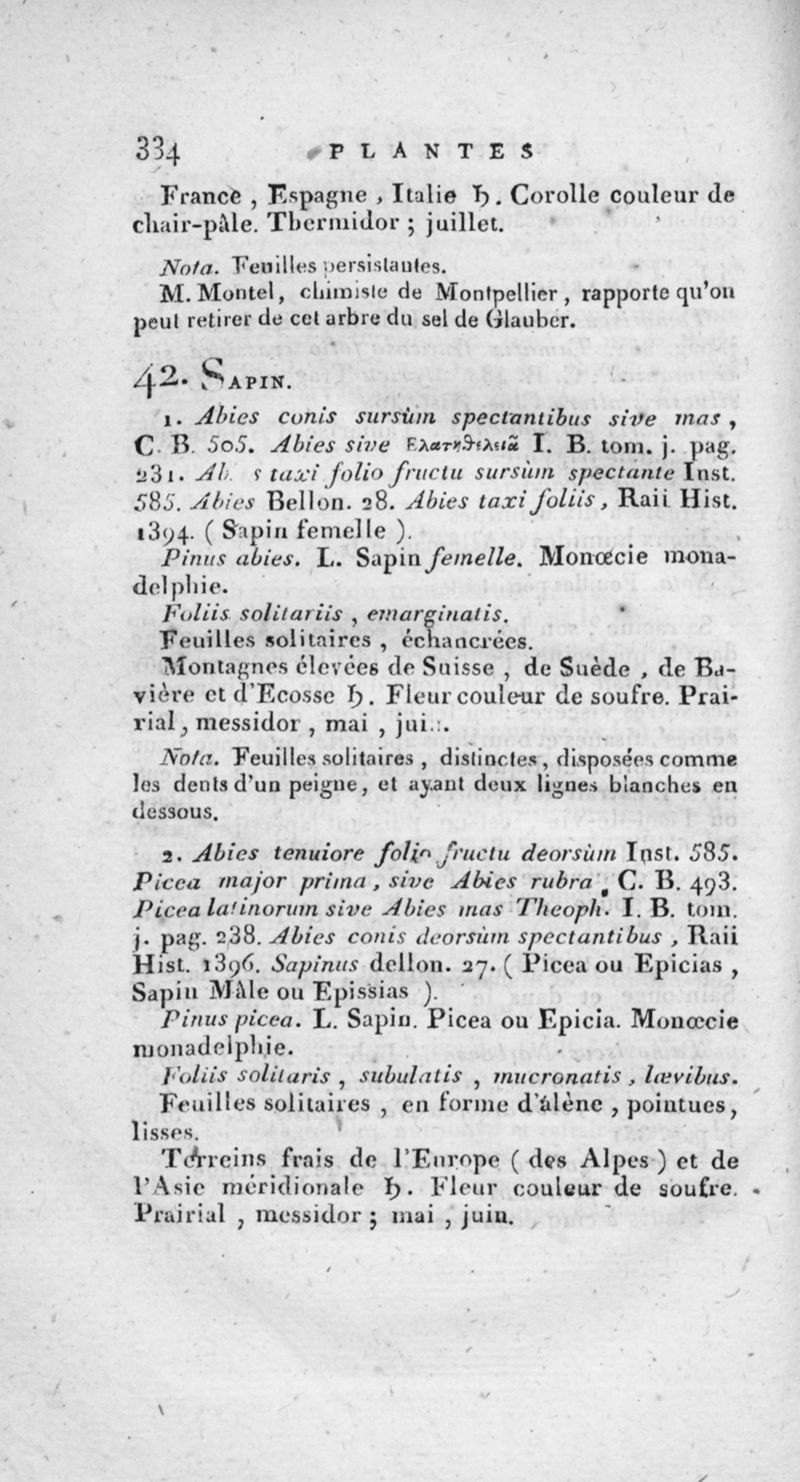 334 PLANTES
France , Espagne , Italie ♄. Corolle couleur de
chair-pâle. Thermidor ; juillet.
Nota. Feuilles persistantes.
M. Montel, chimiste de Montpellier, rapporte qu'on
peut retirer de cet arbre du sel de Glauber.
42. SAPIN.
1. Abies conis sursùm spectantibus sive mas ,
C. B. 505. Abies sive I. B. tom. j. pag.
231. Ab s taxi folio fructu sursùm spectante Inst.
585. Abies Bellon. 28. Abies taxi foliis, Raii Hist.
1394. ( Sapin femelle ).
Pinus abies. L. Sapin femelle. Monœcie mona-
delphie.
Foliis solitariis , emarginatis.
Feuilles solitaires , échancrées.
Montagnes élevées de Suisse , de Suède , de Ba-
vière et d'Ecosse ♄. Fleur couleur de soufre. Prai-
rial, messidor , mai , jui.
Nota. Feuilles solitaires , distinctes, disposées comme
les dents d'un peigne, et ayant deux lignes blanches en
dessous.
2. Abies tenuiore folio fructu deorsùm Inst. 585.
Picea major prima, sive Abies rubra, C. B. 493.
Picea latinorum sive Abies mas Theoph. I. B. tom.
j. pag. 238. Abies conis deorsùm spectantibus , Raii
Hist. 1396. Sapinus dellon. 27. ( Picea ou Epicias ,
Sapin Mâle ou Epissias ).
Pinus picea. L. Sapin. Picea ou Epicia. Monœcie
monadelphie.
Foliis solitaris , subulatis , mucronatis , lævibus.
Feuilles solitaires , en forme d'âlène , pointues,
lisses.
Terreins frais de l'Europe ( des Alpes ) et de
l'Asie méridionale ♄. Fleur couleur de soufre.
Prairial , messidor ; mai , juin.